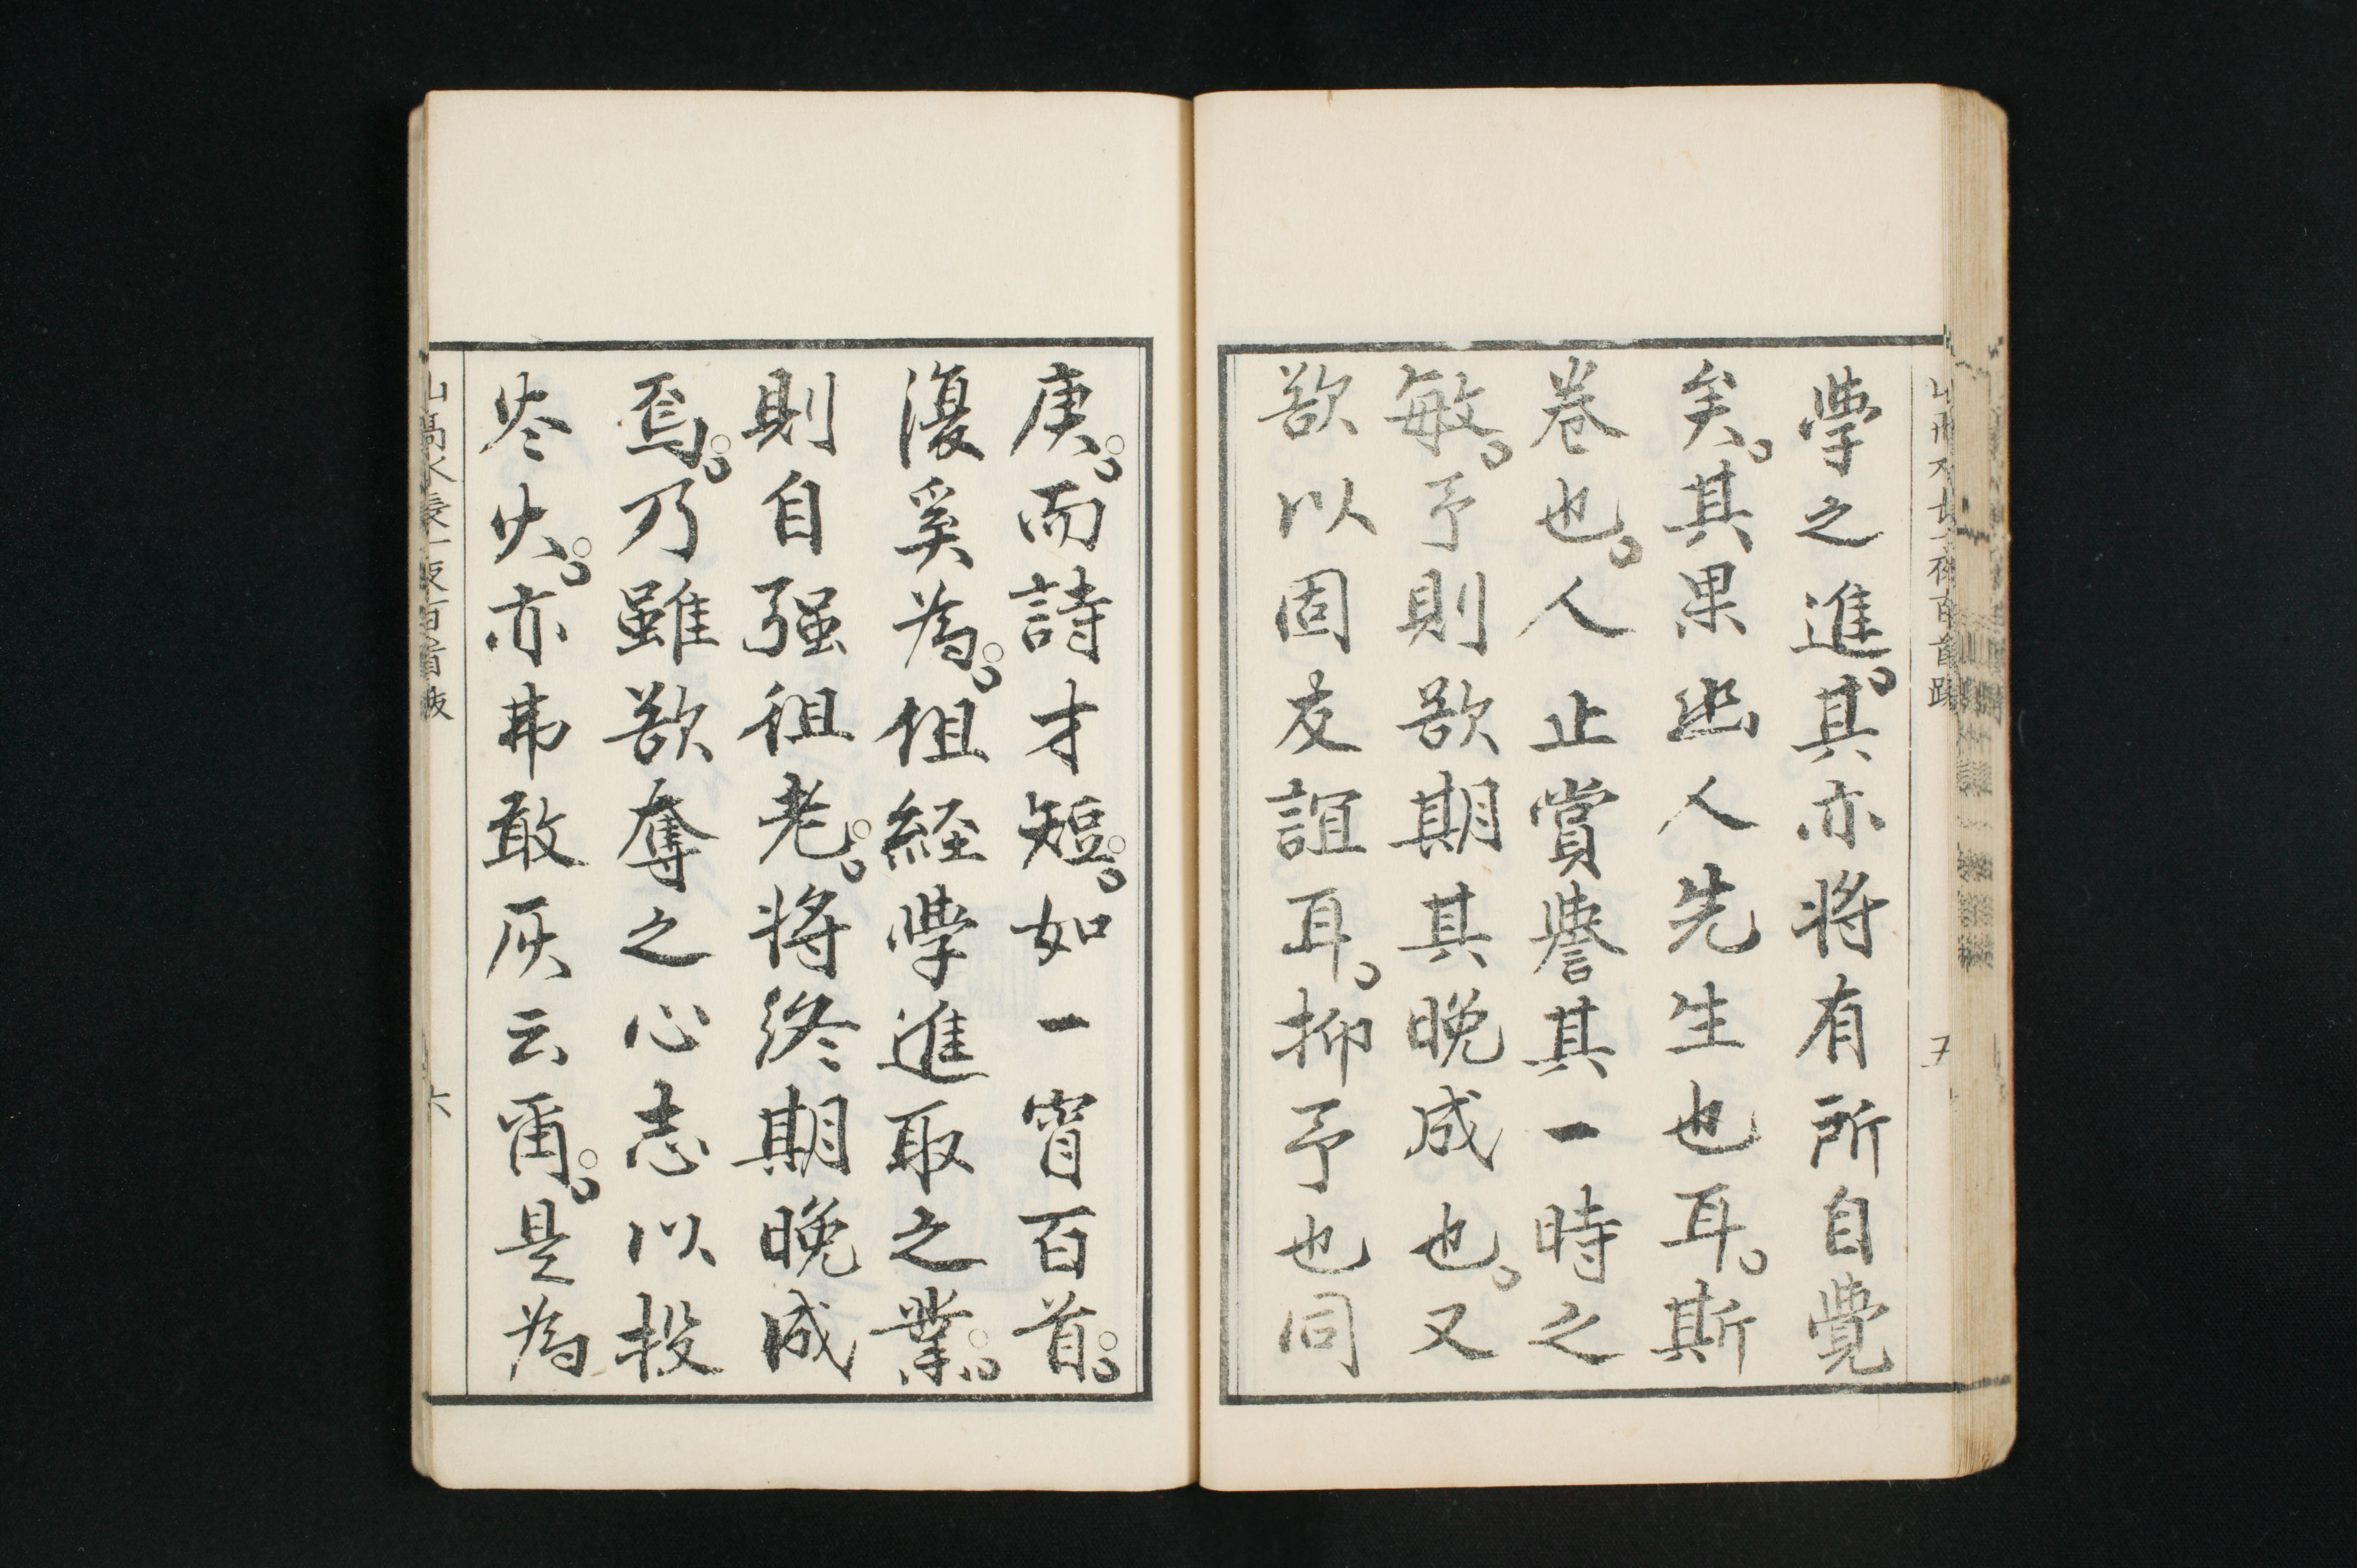 學之進。其亦将有所自覺
矣。其果出人先生也耳。斯
卷也。人止賞譽其一時之
敏。予則欲期其晚成也。又
欲以固友誼耳。抑予也同
庚。而詩才短。如一宵百首。
復奚為。但経學進取之業。
則自强徂老。将終期晚成
焉。乃雖欲奪之心志以投
尖火。亦弗敢灰云爾。是為
山高水長一夜百首跋
六